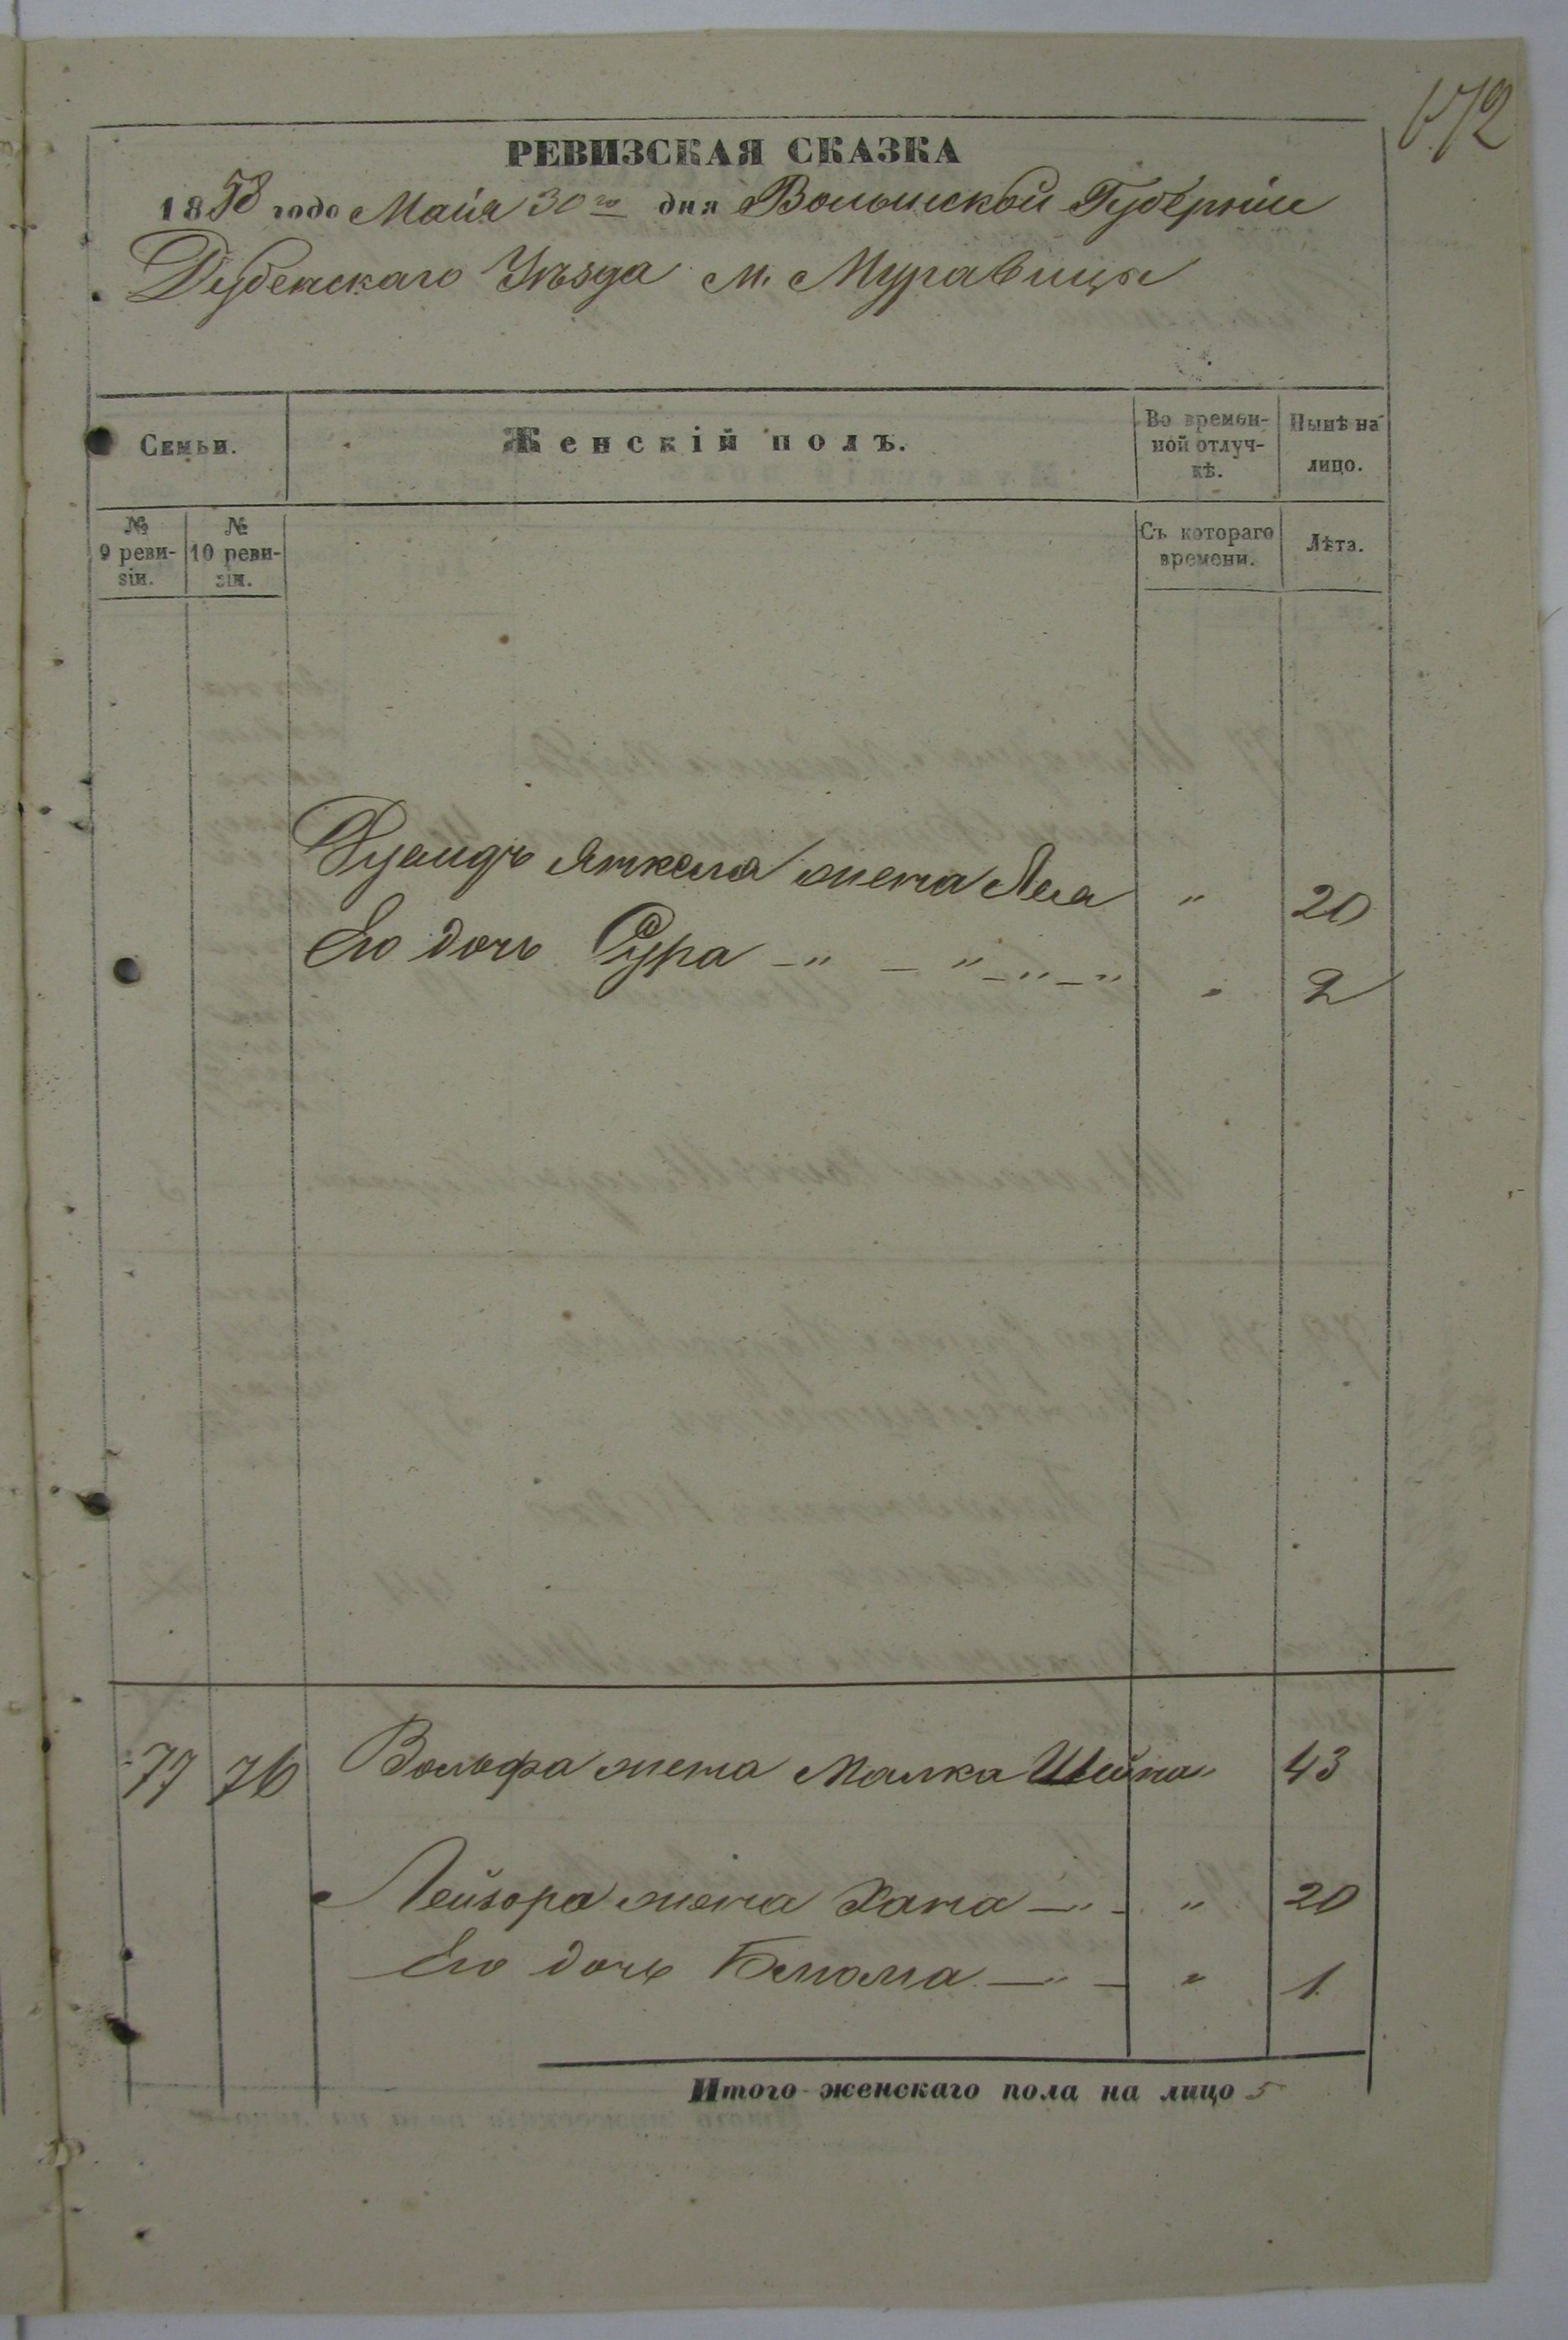 172
РЕВИЗСКАЯ СКАЗКА
1858 года Маія 30го дня Волынской Губерніи
Дубенскаго Уѣзда м. Муравицы
Семьи.
Женскій полъ.
Во времен-
ной отлуч-
кѣ.
Нынѣ на
лицо.
№
9 реви-
зіи.
№
10 реви-
зіи.
Съ котораго
времени.
Лѣта.
жена Леа " 20
Его дочь Сура —"—"—"—" " 2
77 76 Вольфа жена Малка Шейна 43
Лейзора жена Хана —"— " 20
Его дочь —"— " 1
Итого женскаго пола на лицо 5